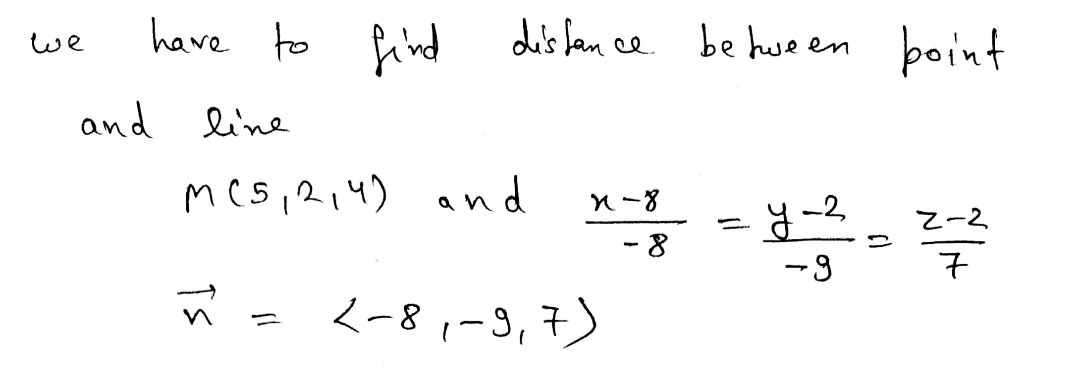 we have to find distance between point
and line
M(5,2,4) and x-8/-8 = y-2/-9 = z-2/7
n⃗ = <-8,-9,7>